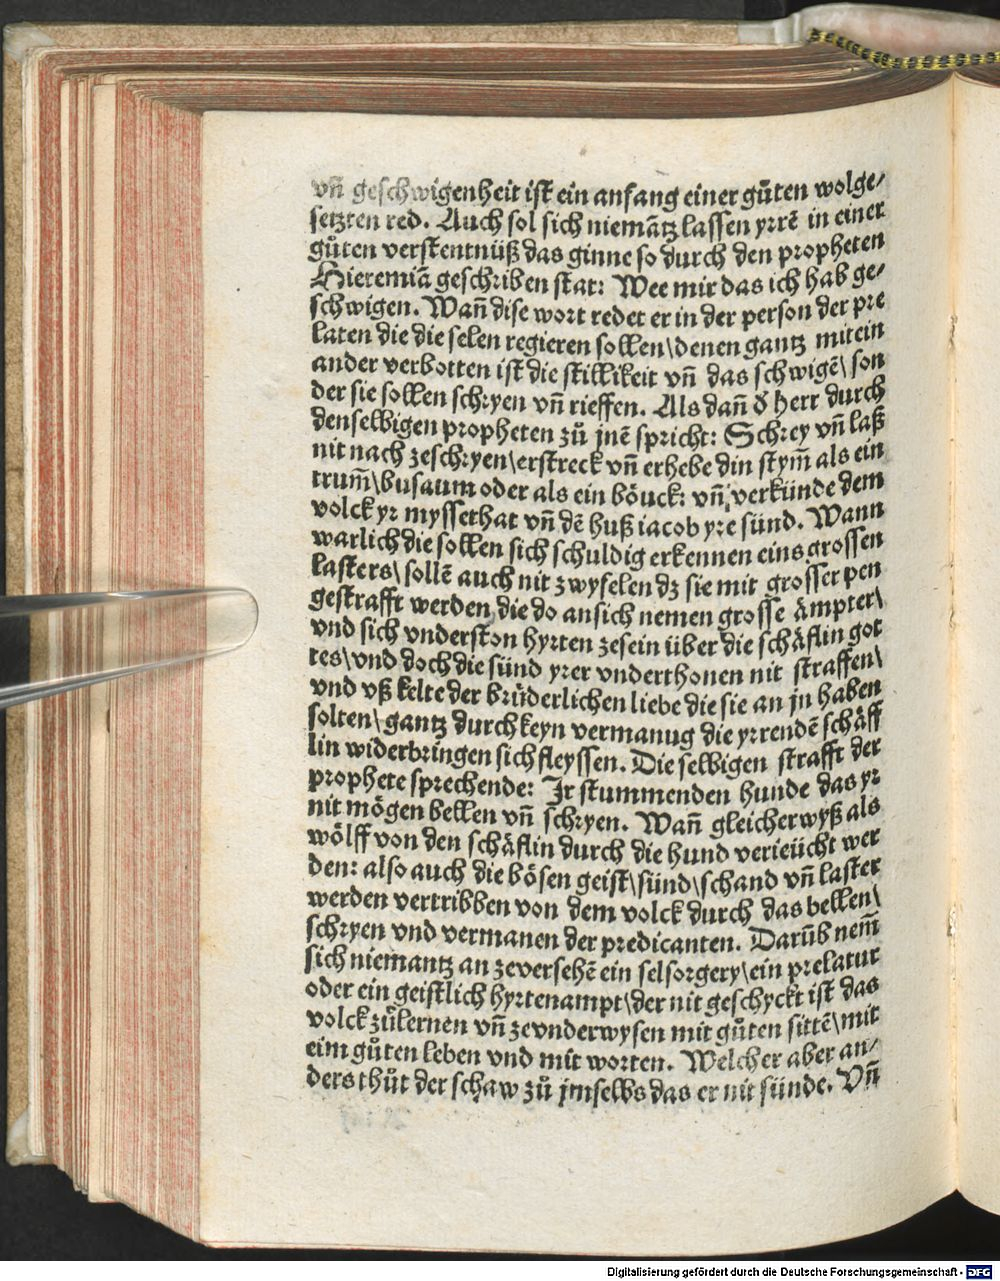 vñ geschwigenheit ist ein anfang einer gůten wolge/
setzten red. Auch sol sich niemãtz lassen yrrẽ in einer
gůten verstentnüß das ginne so durch den propheten
Hieremiã geschriben stat: Wee mir das ich hab ge/
schwigen. Wañ dise wort redet er in der person der pre
laten die die selen regieren sollen\denen gantz mitein
ander verbotten ist die stillikeit vñ das schwigẽ\ son
der sie sollen schryen vñ rieffen. Als dañ d̓ herr durch
denselbigen propheten zů jnẽ spricht: Schrey vñ laß
nit nach zeschryen\erstreck vñ erhebe din stym̃ als ein
trum̃\busaum oder als ein böuck: vñ verkünde dem
volck yr myssethat vñ dẽ huß iacob yre sünd. Wann
warlich die sollen sich schuldig erkennen eins grossen
lasters\ sollẽ auch nit zwyfelen dz sie mit grosser pen
gestrafft werden die do ansich nemen grosse ämpter\
vnd sich vnderston hyrten zesein über die schäflin got
tes\vnd doch die sünd yrer vnderthonen nit straffen\
vnd vß kelte der brüderlichen liebe die sie an jn haben
solten\gantz durch keyn vermanug die yrrendẽ schäff
lin widerbringen sich fleyssen. Die selbigen strafft der
prophete sprechende: Ir stummenden hunde das yr
nit mögen bellen vñ schryen. Wañ gleicherwyß als
wölff von den schäflin durch die hund verieücht wer
den: also auch die bösen geist\sünd\schand vñ laster
werden vertribben von dem volck durch das bellen\
schryen vnd vermanen der predicanten. Darüb nem̃
sich niemantz an zeversehẽ ein selsorgery\ein prelatur
oder ein geistlich hyrtenampt\der nit geschyckt ist das
volck zůlernen vñ zevnderwysen mit gůten sittẽ\mit
eim gůten leben vnd mit worten. Welcher aber an/
ders thüt der schaw zů jmselbs das er nit sünde. Vñ
Digitalisierung gefördert durch die Deutsche Forschungsgemeinschaft - DFG